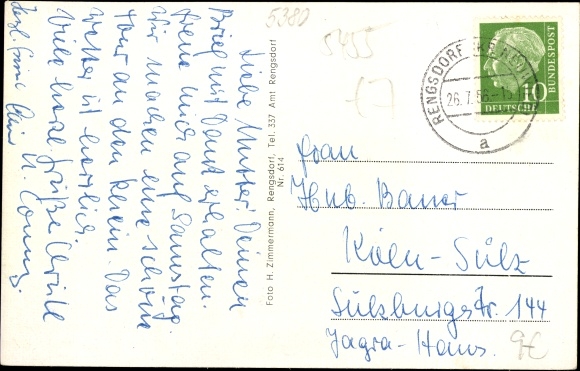 5380
5455
Liebe Mutter! Deinen
Brief mit Dank erhalten.
Freue mich auf Samstag.
Wir machen eine schöne
Tour an den Rhein. Das
Wetter ist herrlich.
Viele herzl. Grüße
Foto H. Zimmermann, Rengsdorf, Tel. 337 Amt Rengsdorf
Nr. 614
RENGSDORF
26.7.56
a
DEUTSCHE
BUNDESPOST
10
Frau
Hub. Bauer
Köln-Sülz
Sülzburgstr. 144
Jagra-Haus.
9€